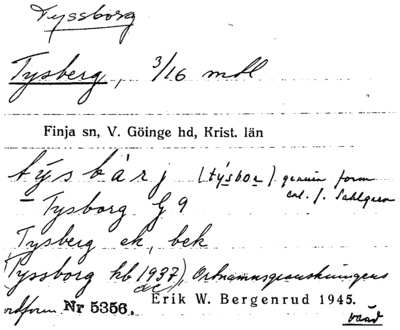 Tyssborg
Tysberg, 3/16 mdl
Finja sn, V. Göinge hd, Krist. län
týsbàrj (týsbor) genuin form
enl. J. Sahlgren
– Tysborg G 9
Tysberg ek, bek
Tyssborg kb 1937), Ortnamnsgranskningens
vård-
ordform Nr 5356. Erik W. Bergenrud 1945.